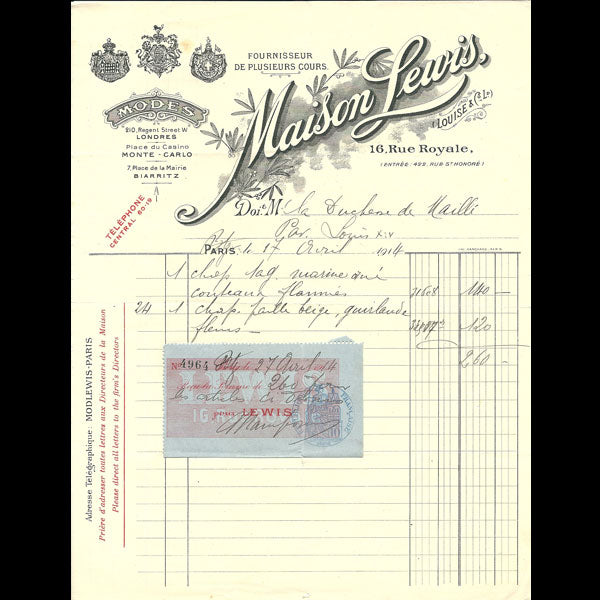 FOURNISSEUR
DE PLUSIEURS COURS.
Maison Lewis,
(LOUISE & Cº Lᴰ)
MODES
210, Regent Street W
LONDRES
Place du Casino
MONTE-CARLO
7, Place de la Mairie
BIARRITZ
16, Rue Royale,
(ENTRÉE: 422, RUE St HONORÉ)
TÉLÉPHONE
CENTRAL 60-19
Doit M la Duchesse de Maillé
Par Louis XIV
PARIS, le 17 Avril 1914
1 chap. tag. marine
couteaux 140 -
24 1 chap. paille beige, guirlande 120
fleurs -
260 -
Nº 4964 27 Avril 14
de 260 f
les articles ci-dessus
pour LEWIS
Adresse Télégraphique: MODLEWIS-PARIS
Prière d'adresser toutes lettres aux Directeurs de la Maison
Please direct all letters to the firm's Directors